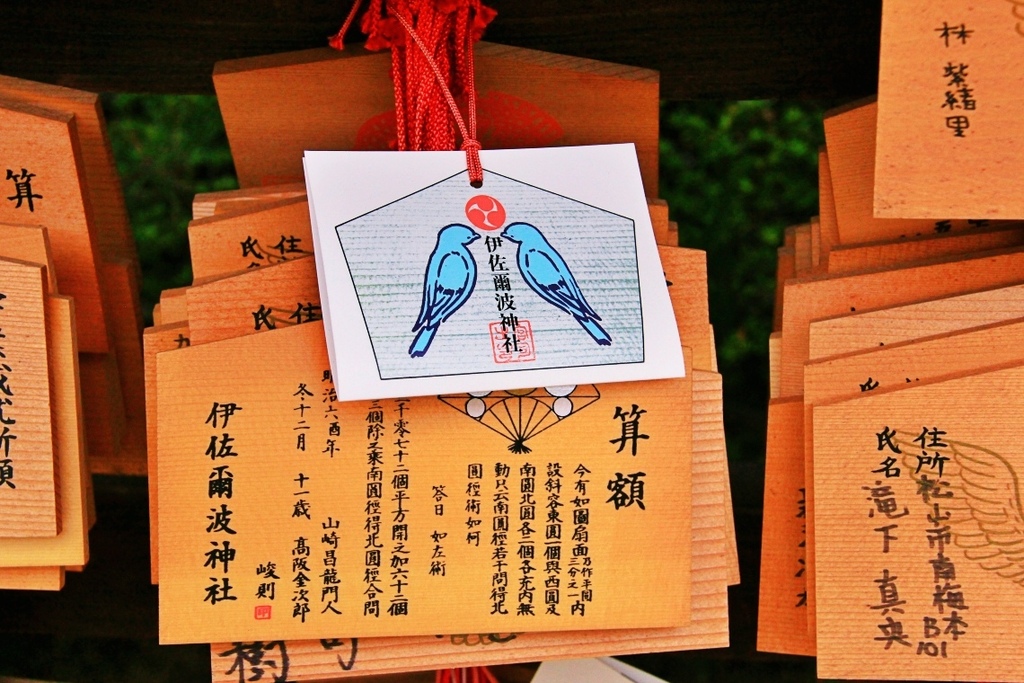 伊佐爾波神社
算額
今有如圖扇面乃作半圓三分之一内
設斜容東圓一個與西圓及
南圓北圓各二個各充内無
動只云南圓徑若干問得北
圓徑術如何
答曰 如左術
三個除之乘南圓徑得北圓徑合問
二千零七十二個平方開之加六十二個
明治六酉年 山崎昌龍門人
冬十二月 十一歳 髙阪金次郎
峻則
伊佐爾波神社
林 紫緒里
住所 松山市南梅本
B
101
氏名 滝下 真央
算
住
氏
住
氏
樹